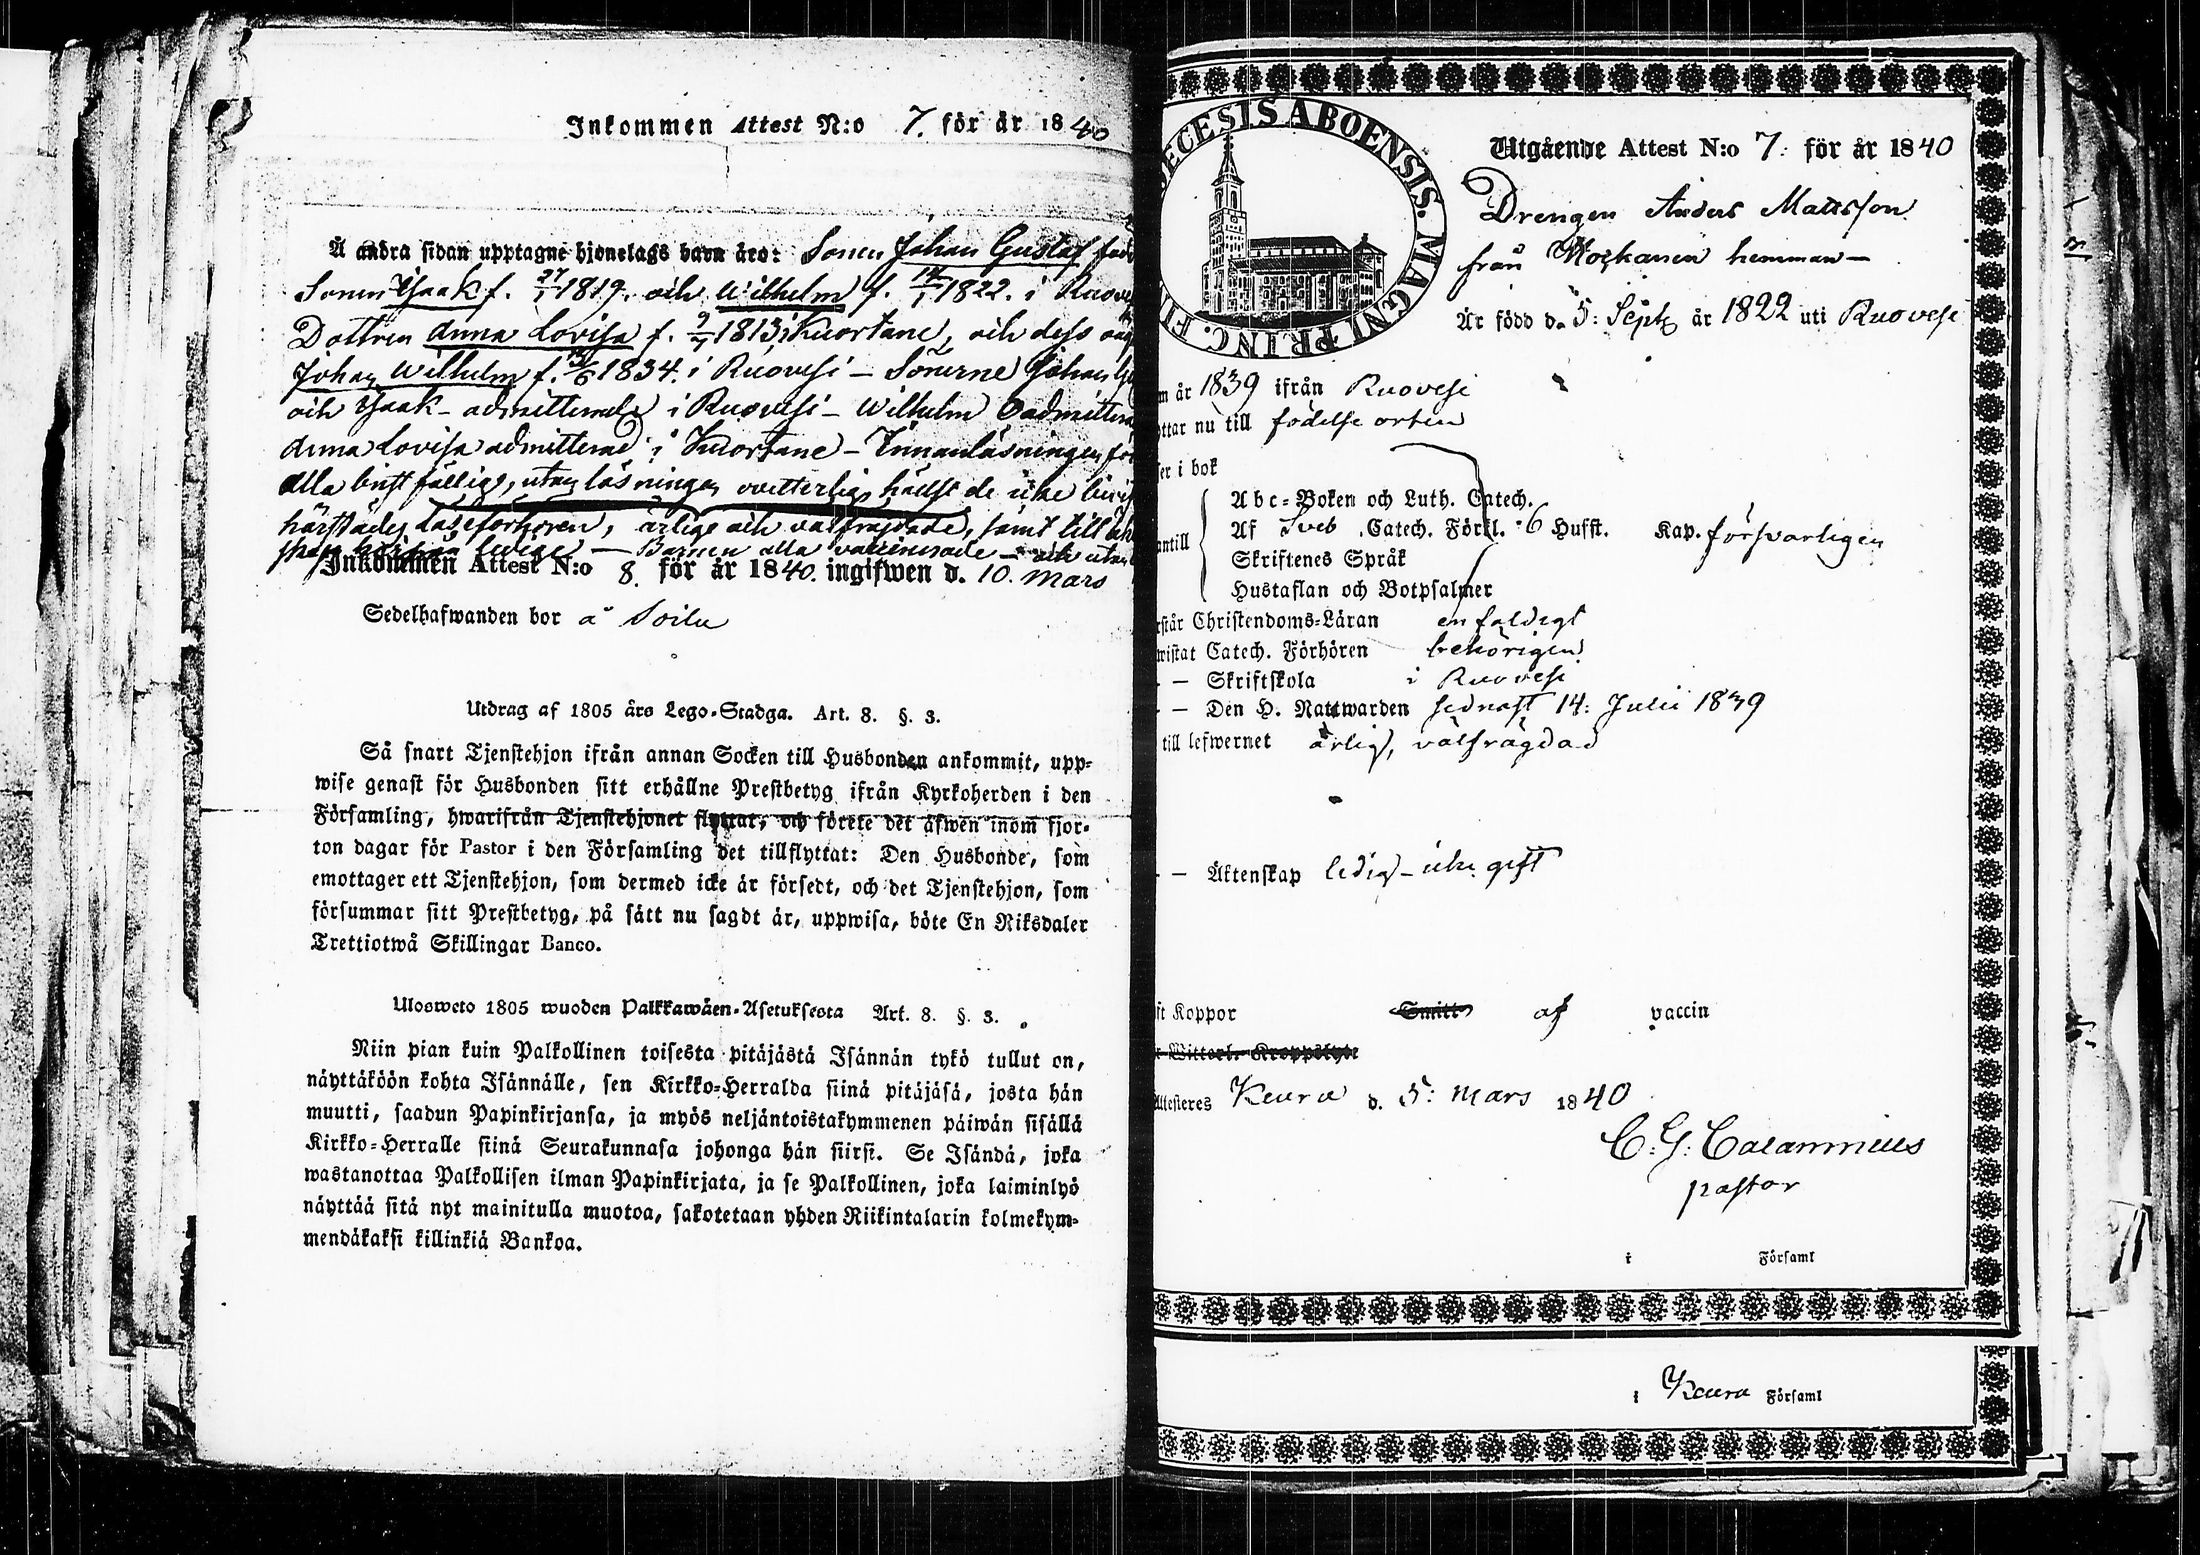 Inkommen Attest N:o 7. för år 1840
Å andra sidan upptagne hjonelags barn äro: Sonen Johan Gustaf född
Sonen Isaak f. 27/1 1819. och Wilhelm f. 14/1 1822. i Ruove
Dottren Anna Lovisa f. 9/1 1813 i Kuortane, och dess
Johan Wilhelm f. 1834. i Ruovesi – Sönerne Johan
och Isaak admitterade i Ruovesi – Wilhelm oadmitterad
Anna Lovisa admitterad i Kuortane – Innanläsningen för
alla bristfällig, utanläsningen
härstädes Läseförhören, ärlige och välfrägdade, samt till
ledige — Barnen alla vaccinerade – och utan
Inkommen Attest N:o 8. för år 1840. ingifwen d. 10. Mars
Sedelhafwanden bor å Soila
Utdrag af 1805 års Lego-Stadga. Art. 8. §. 3.
Så snart Tjenstehjon ifrån annan Socken till Husbonden ankommit, upp-
wise genast för Husbonden sitt erhållne Prestbetyg ifrån Kyrkoherden i den
Församling, hwarifrån Tjenstehjonet flyttat, och förete det äfwen inom fjor-
ton dagar för Pastor i den Församling det tillflyttat: Den Husbonde, som
emottager ett Tjenstehjon, som dermed icke är försedt, och det Tjenstehjon, som
försummar sitt Prestbetyg, på sätt nu sagdt är, uppwisa, böte En Riksdaler
Trettiotwå Skillingar Banco.
Ulosweto 1805 wuoden Palkkawäen-Asetuksesta Art. 8. §. 3.
Niin pian kuin Palkollinen toisesta pitäjästä Isännän tykö tullut on,
näyttäköön kohta Isännälle, sen Kirkko-Herralda siinä pitäjäsä, josta hän
muutti, saadun Papinkirjansa, ja myös neljäntoistakymmenen päiwän sisällä
Kirkko-Herralle siinä Seurakunnasa johonga hän siirsi. Se Isändä, joka
wastanottaa Palkollisen ilman Papinkirjata, ja se Palkollinen, joka laiminlyö
näyttää sitä nyt mainitulla muotoa, sakotetaan yhden Riikintalarin kolmekym-
mendäkaksi killinkiä Bankoa.
ECESIS ABOENSIS. MAGNI PRINC. FIN
Utgående Attest N:o 7: för år 1840
Drengen Anders Mattsson
från hemman –
Är född d. 5: Sept. år 1822 uti Ruovesi
m år 1839 ifrån Ruovesi
ttar nu till födelse orten
ser i bok
antill
Abc-Boken och Luth. Catech.
Af Sveb. Catech. Förkl. 6 Hufst. Kap. försvarligen
Skriftenes Språk
Hustaflan och Botpsalmer
rstår Christendoms-Läran enfaldigt
wistat Catech. Förhören behörigen
– – Skriftskola i Ruovesi
– – Den H. Nattwarden sednast 14: Julii 1839
till lefwernet ärlig, välfrägdad
– – Äktenskap ledig – icke gift
ft Koppor Smitt af vaccin
r Witterl. Kroppslyte
Attesteres Keuru d. 5: Mars 1840
C: G: Calamnius
pastor
i Församl
i Keuru Församl